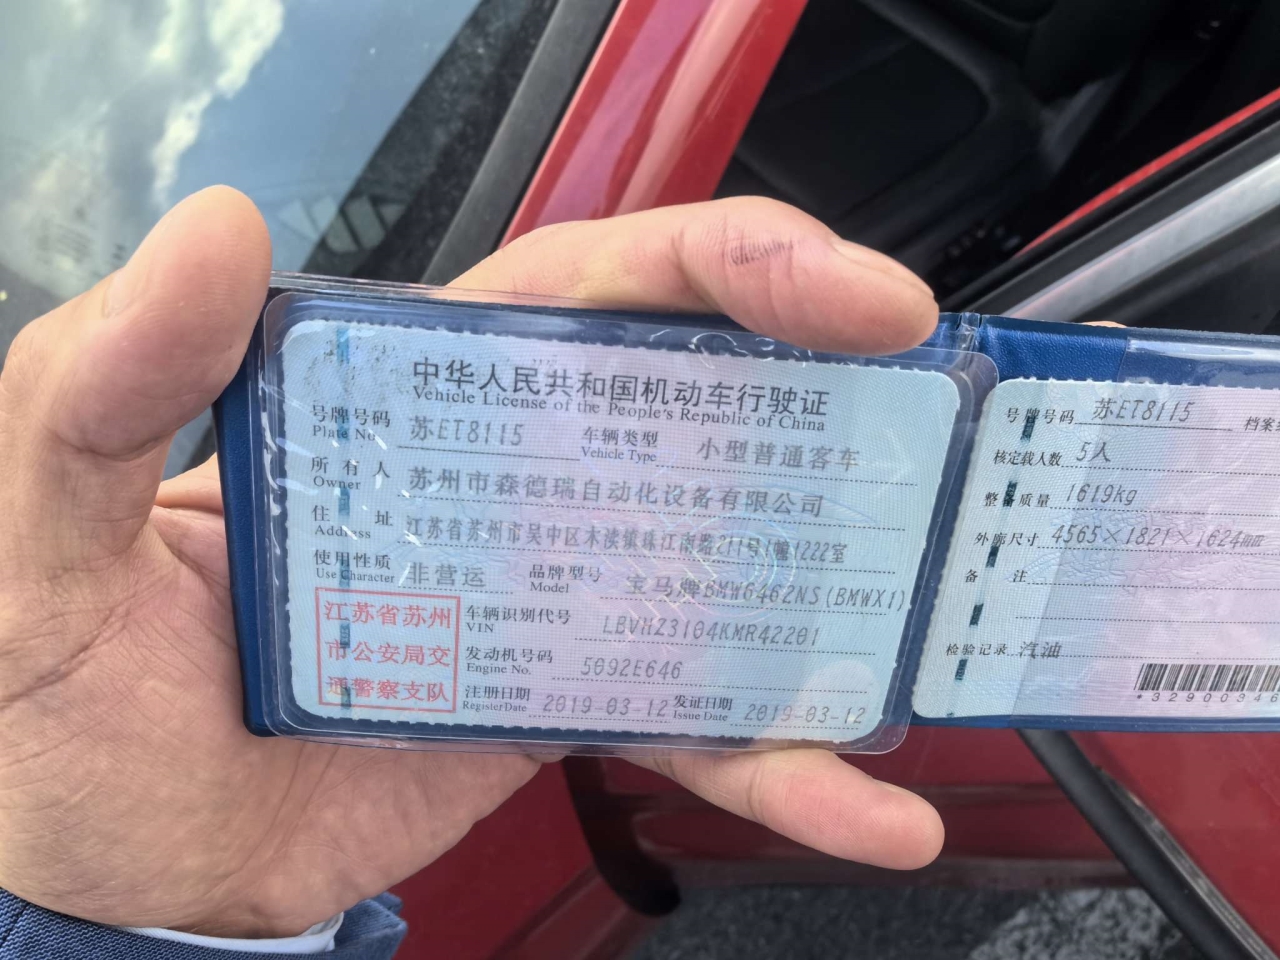 中华人民共和国机动车行驶证
Vehicle License of the People's Republic of China
号牌号码 苏ET8115 车辆类型 小型普通客车
Plate No. Vehicle Type
所有人 苏州市森德瑞自动化设备有限公司
Owner
住址 江苏省苏州市吴中区木渎镇珠江南路211号1幢1222室
Address
使用性质 非营运 品牌型号 宝马牌BMW6462NS(BMWX1)
Use Character Model
江苏省苏州
市公安局交
通警察支队
车辆识别代号 LBVHZ3104KMR42201
VIN
发动机号码 5092E646
Engine No.
注册日期 2019-03-12 发证日期 2019-03-12
Register Date Issue Date
号牌号码 苏ET8115 档案
核定载人数 5人
整备质量 1619kg
外廓尺寸 4565×1821×1624mm
备注
检验记录 汽油
*32900346